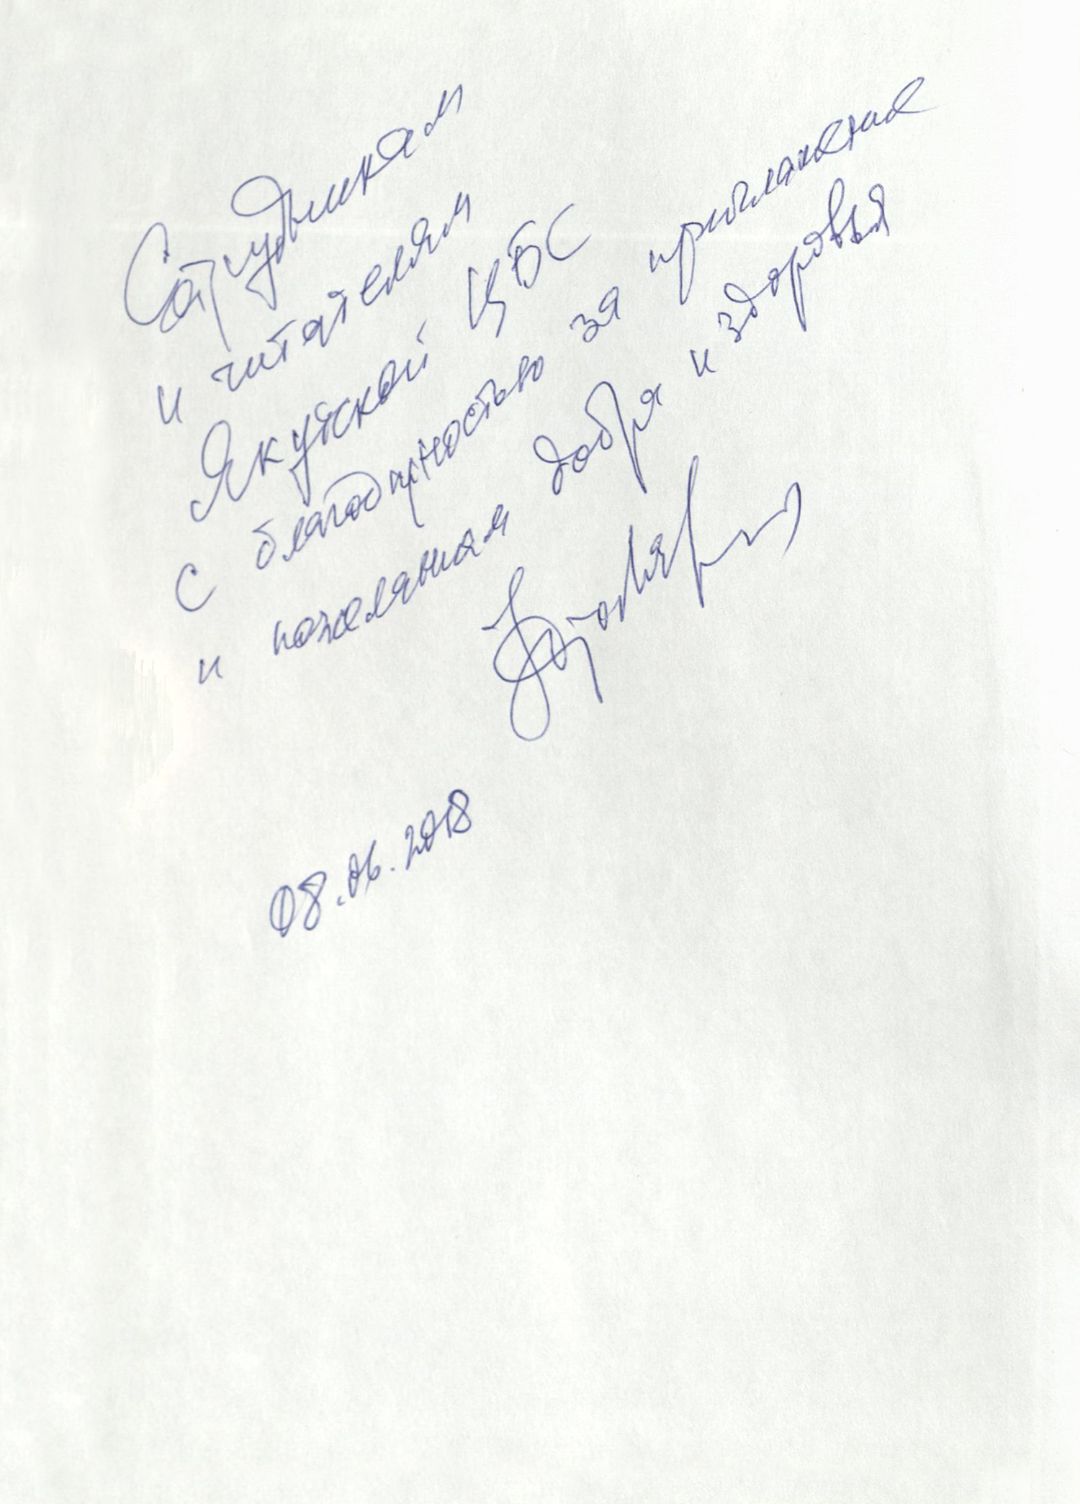 Сотрудникам
и читателям
Якутской ЦБС
с благодарностью за приглашение
и пожеланием добра и здоровья
08.06.2018